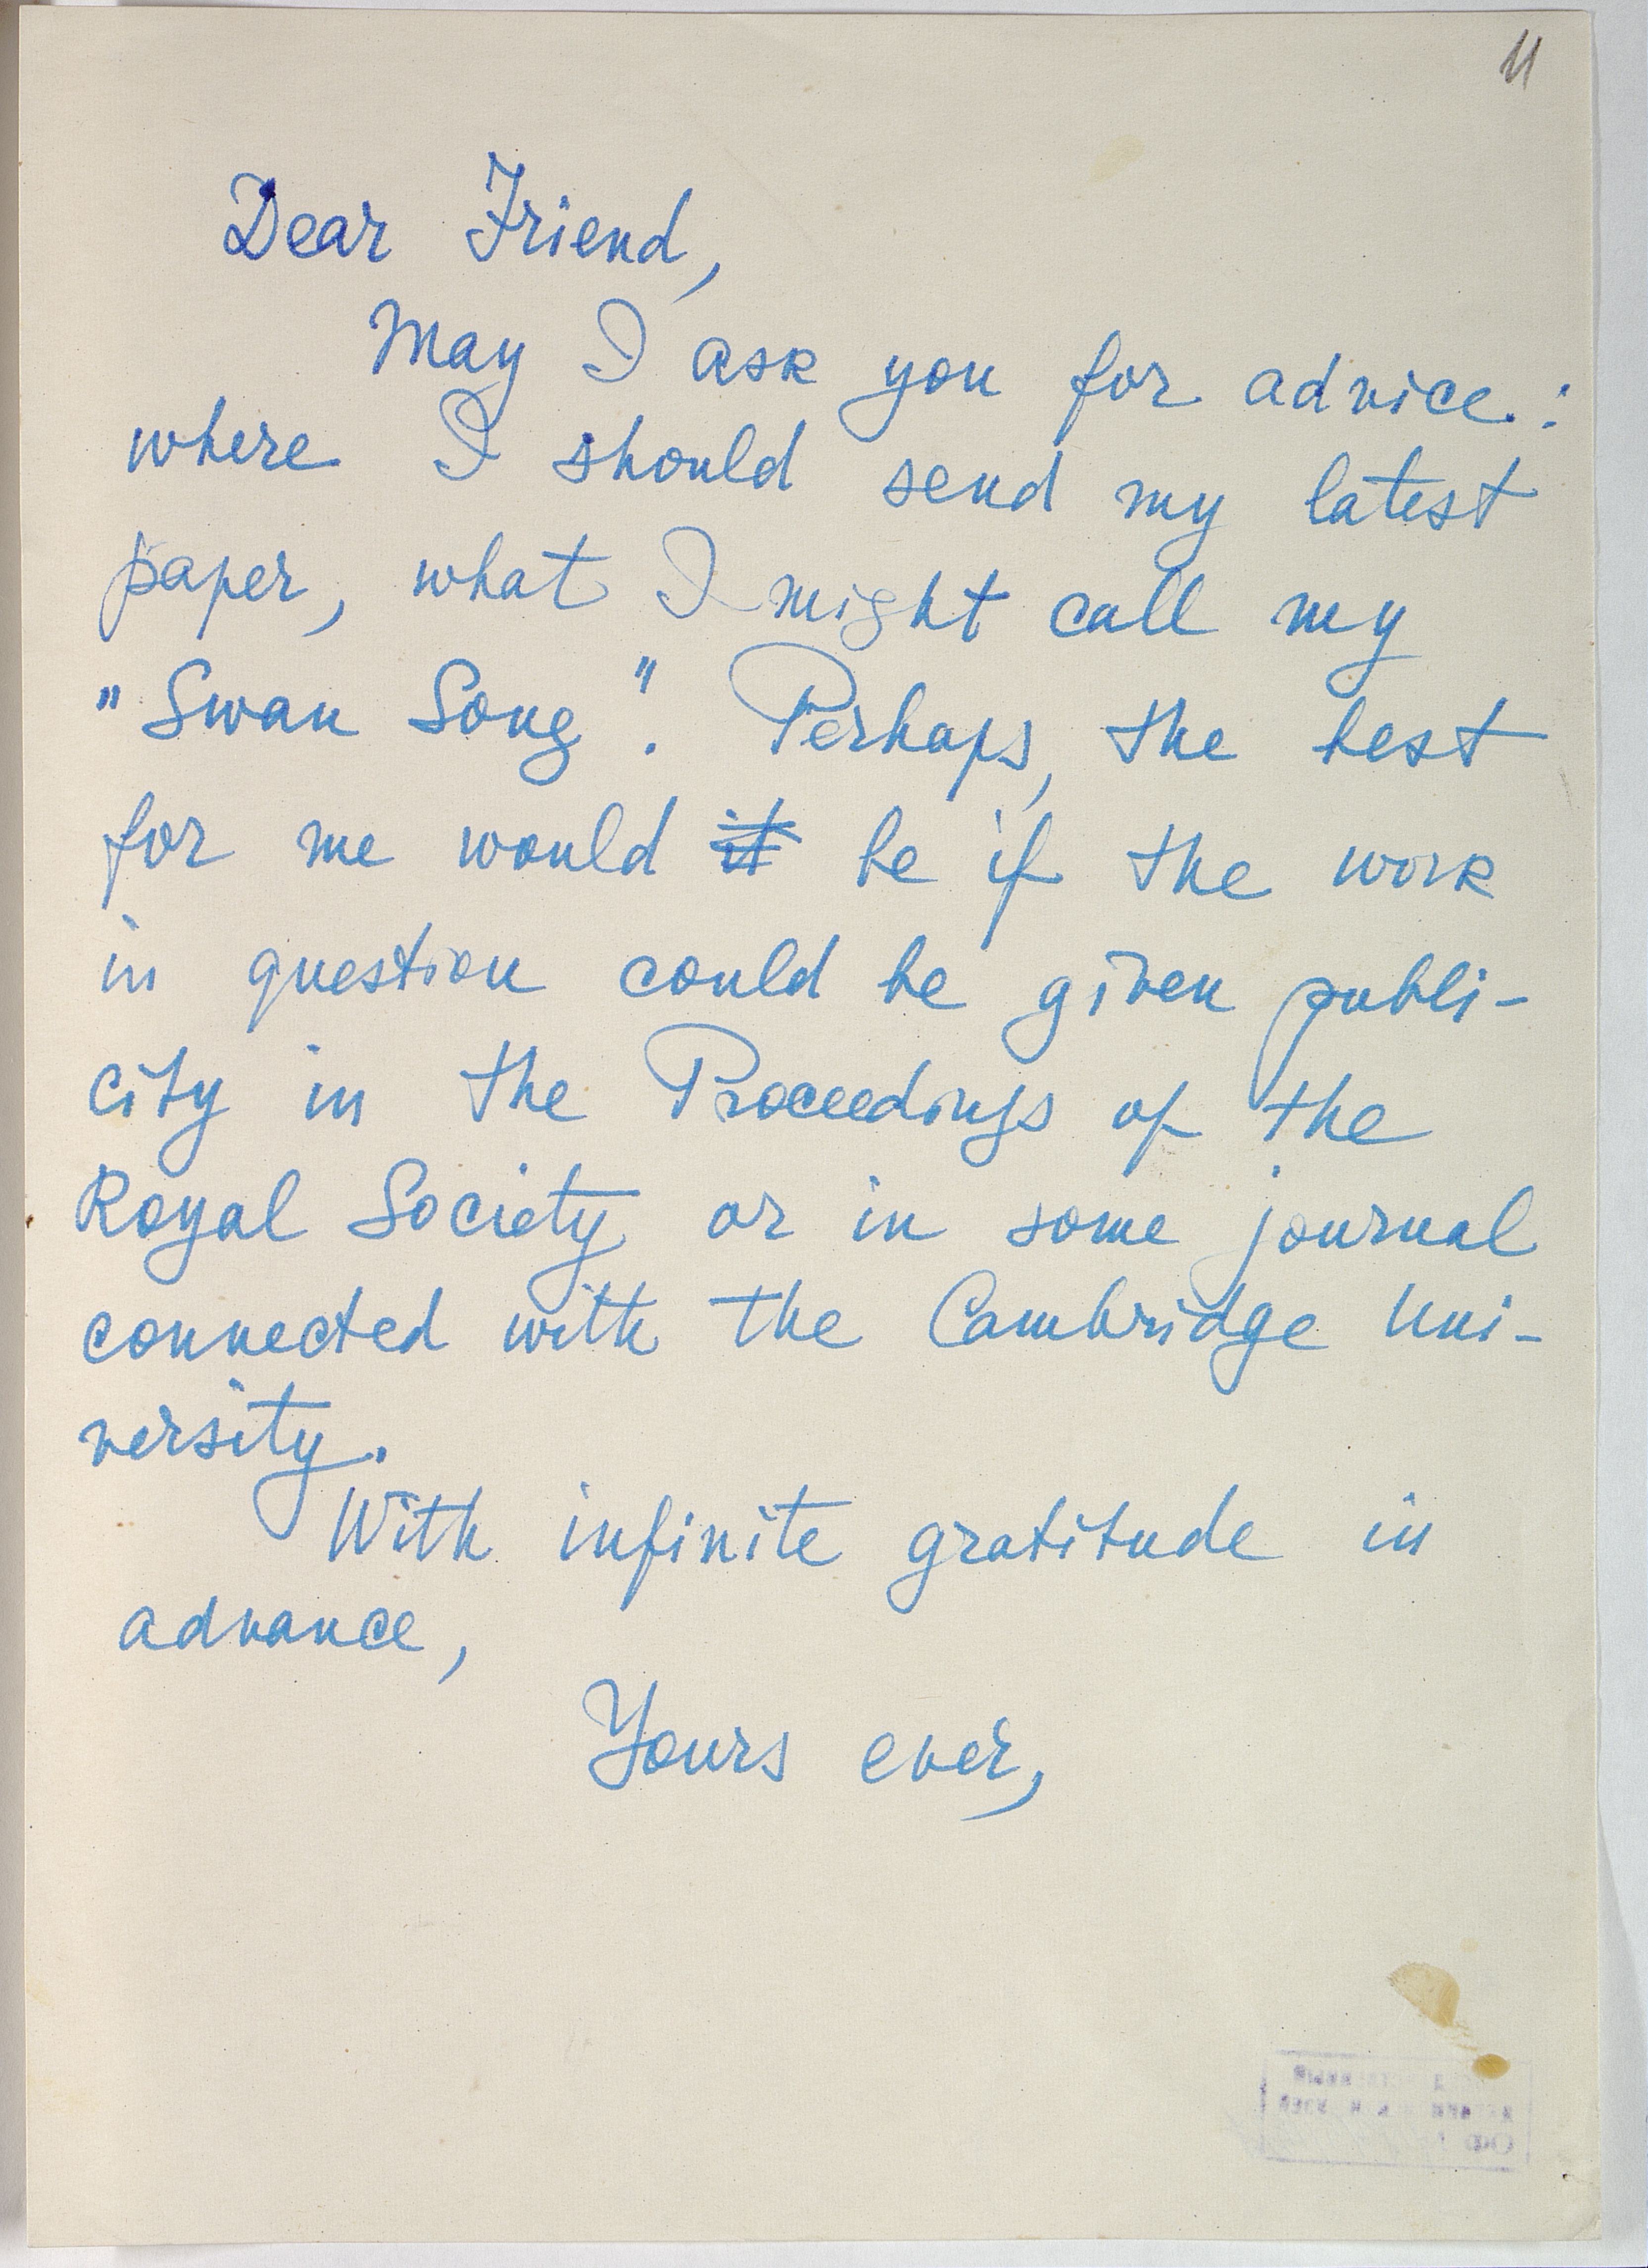 11
Dear Friend,
May I ask you for advice:
where I should send my latest
paper, what I might call my
"Swan Song". Perhaps, the best
for me would it be if the work
in question could be given publi-
city in the Proceedings of the
Royal Society or in some journal
connected with the Cambridge Uni-
versity.
With infinite gratitude in
advance,
Yours ever,